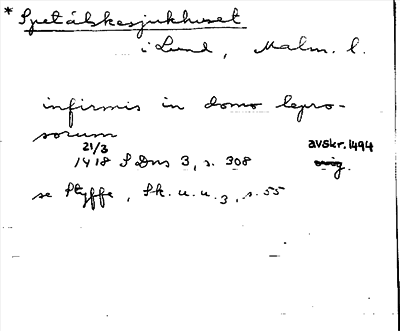 * Spetälskesjukhuset
i Lund, Malm. l.
infirmis in domo lepro-
sorum
21/3 avskr. 1494
1418 SDns 3, s. 308 orig.
se Styffe, Sk. u. u. 3, s. 55